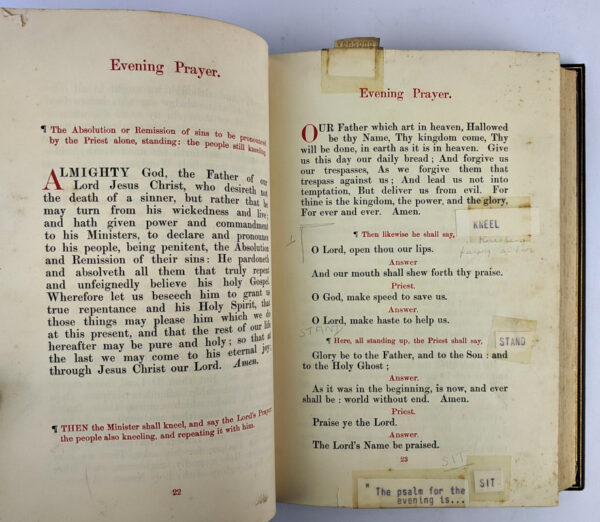 Evening Prayer.
¶ The Absolution or Remission of sins to be pronounced
by the Priest alone, standing: the people still kneeling.
ALMIGHTY God, the Father of our
Lord Jesus Christ, who desireth not
the death of a sinner, but rather that he
may turn from his wickedness and live;
and hath given power and commandment
to his Ministers, to declare and pronounce
to his people, being penitent, the Absolution
and Remission of their sins: He pardoneth
and absolveth all them that truly repent
and unfeignedly believe his holy Gospel.
Wherefore let us beseech him to grant us
true repentance and his Holy Spirit, that
those things may please him which we do
at this present, and that the rest of our life
hereafter may be pure and holy; so that at
the last we may come to his eternal joy;
through Jesus Christ our Lord. Amen.
¶ THEN the Minister shall kneel, and say the Lord's Prayer,
the people also kneeling, and repeating it with him.
22
Evening Prayer.
OUR Father which art in heaven, Hallowed
be thy Name, Thy kingdom come, Thy
will be done, in earth as it is in heaven. Give
us this day our daily bread; And forgive us
our trespasses, As we forgive them that
trespass against us; And lead us not into
temptation, But deliver us from evil. For
thine is the kingdom, the power, and the glory,
For ever and ever. Amen.
KNEEL
¶ Then likewise he shall say,
O Lord, open thou our lips.
Answer
And our mouth shall shew forth thy praise.
Priest.
O God, make speed to save us.
Answer.
O Lord, make haste to help us.
STAND
¶ Here, all standing up, the Priest shall say,
STAND
Glory be to the Father, and to the Son: and
to the Holy Ghost;
Answer.
As it was in the beginning, is now, and ever
shall be: world without end. Amen.
Priest.
Praise ye the Lord.
Answer.
The Lord's Name be praised.
23
SIT
SIT
"The psalm for the
evening is...